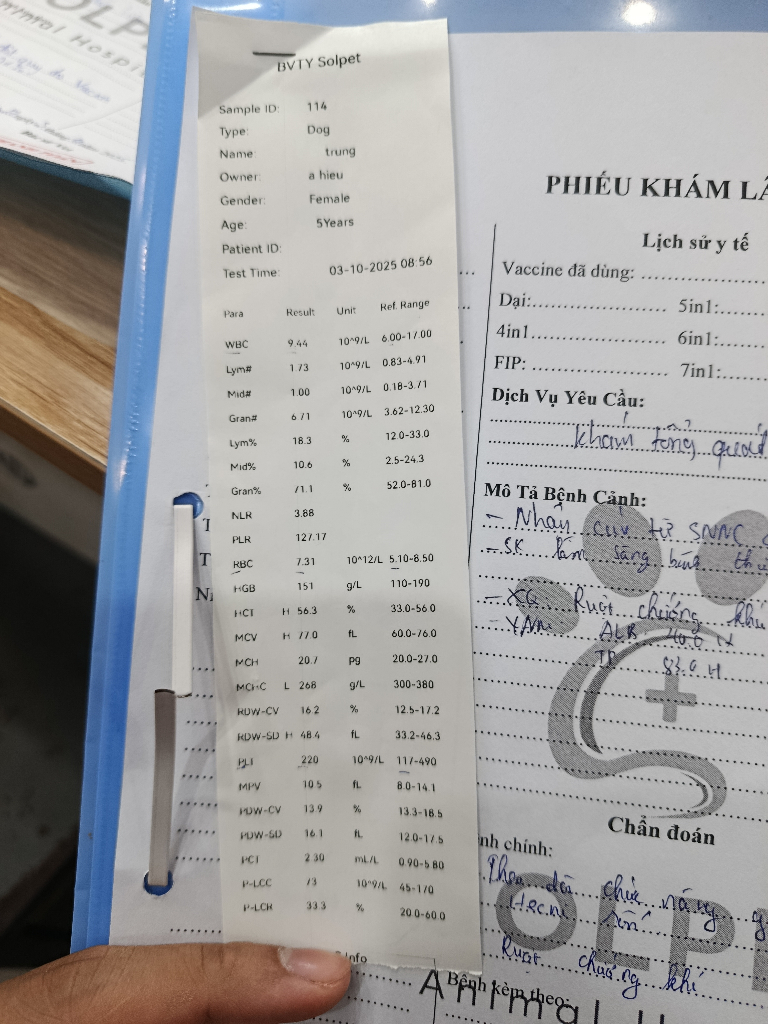 BVTY Solpet
Sample ID: 114
Type: Dog
Name: trung
Owner: a hieu
Gender: Female
Age: 5Years
Patient ID:
Test Time: 03-10-2025 08:56
Para Result Unit Ref. Range
WBC 9.44 10^9/L 6.00-17.00
Lym# 1.73 10^9/L 0.83-4.91
Mid# 1.00 10^9/L 0.18-3.71
Gran# 6.71 10^9/L 3.62-12.30
Lym% 18.3 % 12.0-33.0
Mid% 10.6 % 2.5-24.3
Gran% 71.1 % 52.0-81.0
NLR 3.88
PLR 127.17
RBC 7.31 10^12/L 5.10-8.50
HGB 151 g/L 110-190
HCT H 56.3 % 33.0-56.0
MCV H 77.0 fL 60.0-76.0
MCH 20.7 pg 20.0-27.0
MCHC L 268 g/L 300-380
RDW-CV 16.2 % 12.5-17.2
RDW-SD H 48.4 fL 33.2-46.3
PLT 220 10^9/L 117-490
MPV 10.5 fL 8.0-14.1
PDW-CV 13.9 % 13.3-18.5
PDW-SD 16.1 fL 12.0-17.5
PCT 2.30 mL/L 0.90-5.80
P-LCC 73 10^9/L 45-170
P-LCR 33.3 % 20.0-60.0
Info
PHIẾU KHÁM
Lịch sử y tế
Vaccine đã dùng:
Dại: 5in1:
4in1 6in1:
FIP: 7in1:
Dịch Vụ Yêu Cầu:
khám tổng quát
Mô Tả Bệnh Cảnh:
- Nhận cứu từ SNNC
- SK lâm sàng bình
- XQ Ruột chướng khí
- XNM ALB 40.6 H
TP 83.9 H
Chẩn đoán
chính:
Theo dõi chức năng
Ruột chướng khí
Bệnh kèm theo:
OLP
Animal H